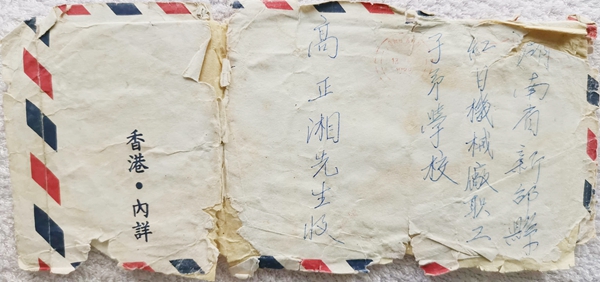 湖南省新邵縣
红日機械廠职工
子弟學校
高正湘先生收
香港・內詳